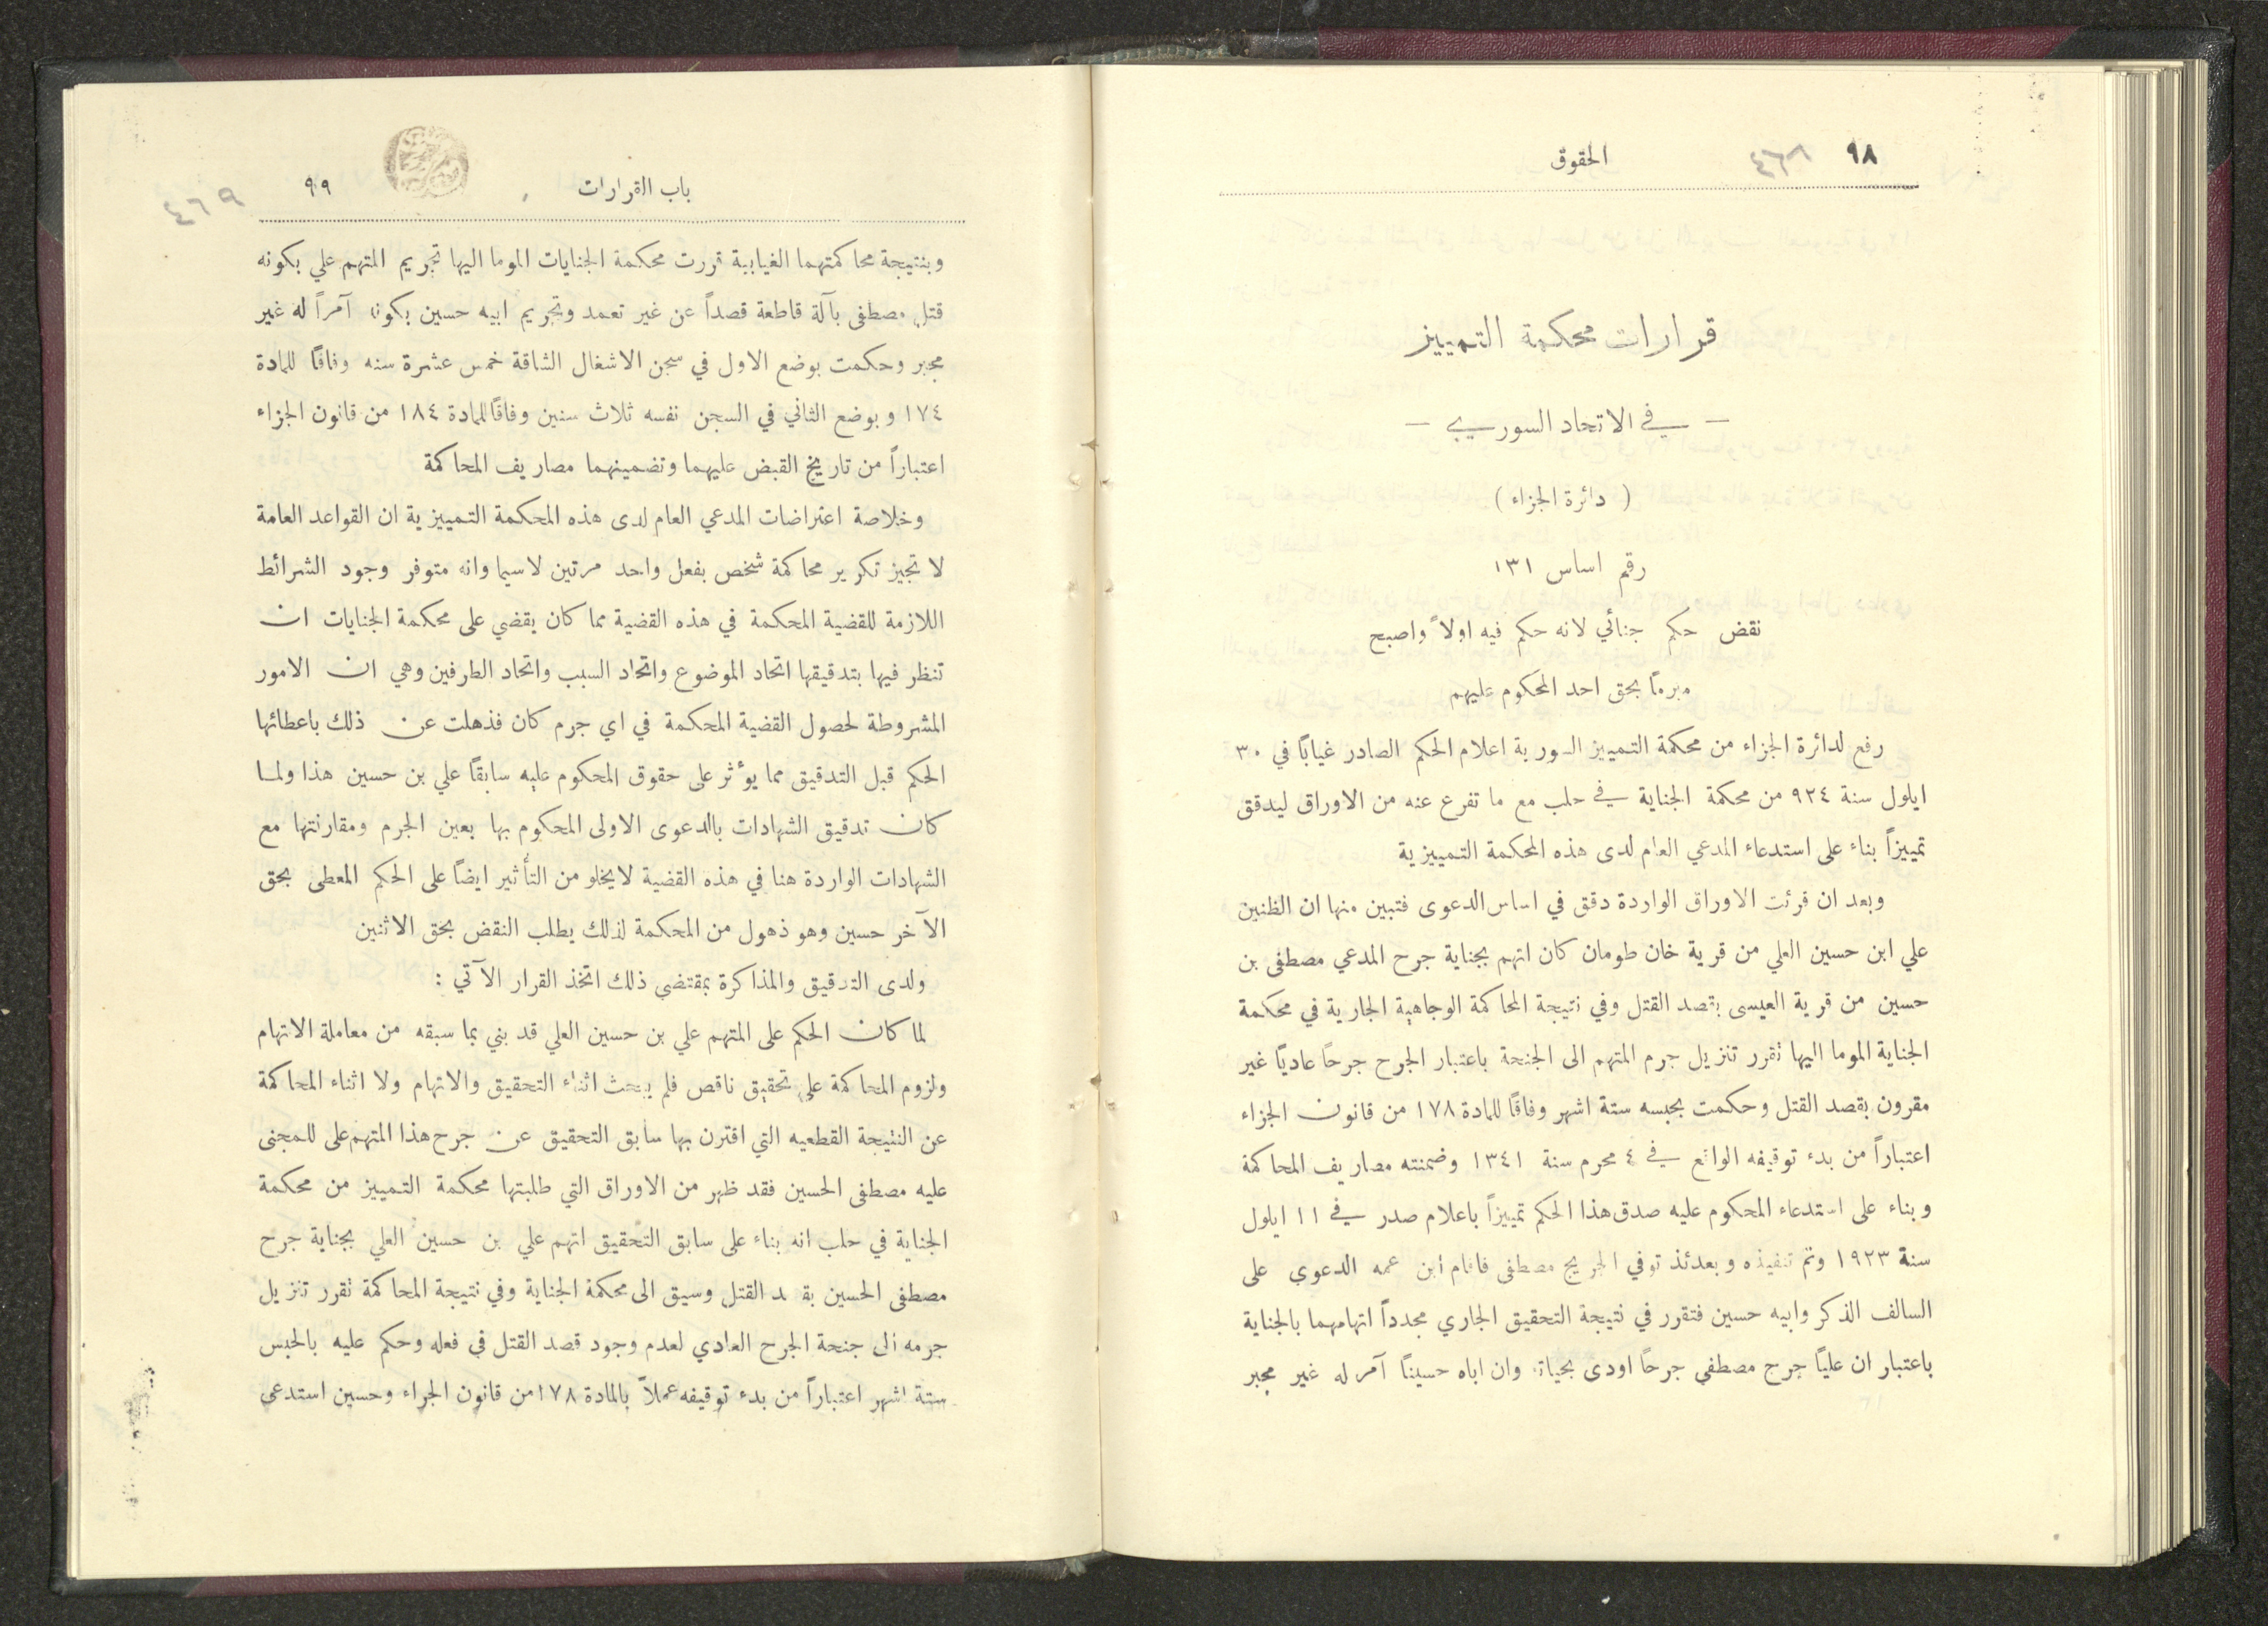 ٩٨ ٤٦٨ الحقوق
قرارات محكمة التمييز
— في الاتحاد السوري —
( دائرة الجزاء )
رقم اساس ١٣١
نقض حكم جنائي لانه حكم فيه اولاً واصبح
مبرماً بحق احد المحكوم عليهم
رفع لدائرة الجزاء من محكمة التمييز السورية اعلام الحكم الصادر غيابًا في ٣٠
ايلول سنة ٩٢٤ من محكمة الجناية في حلب مع ما تفرع عنه من الاوراق ليدقق
تمييزاً بناء على استدعاء المدعي العام لدى هذه المحكمة التمييزية
وبعد ان قرئت الاوراق الواردة دقق في اساس الدعوى فتبين منها ان الظنين
علي ابن حسين العلي من قرية خان طومان كان اتهم بجناية جرح المدعي مصطفى بن
حسين من قرية العيسى بقصد القتل وفي نتيجة المحاكمة الوجاهية الجارية في محكمة
الجناية الموما اليها تقرر تنزيل جرم المتهم الى الجنحة باعتبار الجرح جرحًا عاديًا غير
مقرون بقصد القتل وحكمت بحبسه ستة اشهر وفاقًا للمادة ١٧٨ من قانون الجزاء
اعتباراً من بدء توقيفه الواقع في ٤ محرم سنة ١٣٤١ وضمنته مصاريف المحاكمة
وبناء على استدعاء المحكوم عليه صدق هذا الحكم تمييزاً باعلام صدر في ١١ ايلول
سنة ١٩٢٣ وتم تنفيذه وبعدئذ توفي الجريح مصطفى فاقام ابن عمه الدعوى على
السالف الذكر وابيه حسين فتقرر في نتيجة التحقيق الجاري مجدداً اتهامهما بالجناية
باعتبار ان عليًا جرح مصطفى جرحًا اودى بحياته وان اباه حسينًا آمر له غير مجبر
باب القرارات ٩٩ ٤٦٩
وبنتيجة محاكمتهما الغيابية قررت محكمة الجنايات الموما اليها تجريم المتهم علي بكونه
قتل مصطفى بآلة قاطعة قصداً عن غير تعمد وتجريم ابيه حسين بكونه آمراً له غير
مجبر وحكمت بوضع الاول في سجن الاشغال الشاقة خمس عشرة سنه وفاقًا للمادة
١٧٤ وبوضع الثاني في السجن نفسه ثلاث سنين وفاقًا للمادة ١٨٤ من قانون الجزاء
اعتباراً من تاريخ القبض عليهما وتضمينهما مصاريف المحاكمة
وخلاصة اعتراضات المدعي العام لدى هذه المحكمة التمييزية ان القواعد العامة
لا تجيز تكرير محاكمة شخص بفعل واحد مرتين لاسيما وانه متوفر وجود الشرائط
اللازمة للقضية المحكمة في هذه القضية مما كان يقضي على محكمة الجنايات ان
تنظر فيها بتدقيقها اتحاد الموضوع واتحاد السبب واتحاد الطرفين وهي ان الامور
المشروطة لحصول القضية المحكمة في اي جرم كان فذهلت عن ذلك باعطائها
الحكم قبل التدقيق مما يؤثر على حقوق المحكوم عليه سابقًا علي بن حسين هذا ولما
كان تدقيق الشهادات بالدعوى الاولى المحكوم بها بعين الجرم ومقارنتها مع
الشهادات الواردة هنا في هذه القضية لا يخلو من التأثير ايضًا على الحكم المعطى بحق
الآخر حسين وهو ذهول من المحكمة لذلك يطلب النقض بحق الاثنين
ولدى التدقيق والمذاكرة بمقتضى ذلك اتخذ القرار الآتي :
لما كان الحكم على المتهم علي بن حسين العلي قد بني بما سبقه من معاملة الاتهام
ولزوم المحاكمة على تحقيق ناقص فلم يبحث اثناء التحقيق والاتهام ولا اثناء المحاكمة
عن النتيجة القطعيه التي اقترن بها سابق التحقيق عن جرح هذا المتهم على للمجنى
عليه مصطفى الحسين فقد ظهر من الاوراق التي طلبتها محكمة التمييز من محكمة
الجناية في حلب انه بناء على سابق التحقيق اتهم علي بن حسين العلي بجناية جرح
مصطفى الحسين بقصد القتل وسيق الى محكمة الجناية وفي نتيجة المحاكمة تقرر تنزيل
جرمه الى جنحة الجرح العادي لعدم وجود قصد القتل في فعله وحكم عليه بالحبس
ستة اشهر اعتباراً من بدء توقيفه عملاً بالمادة ١٧٨ من قانون الجراء وحسين استدعى